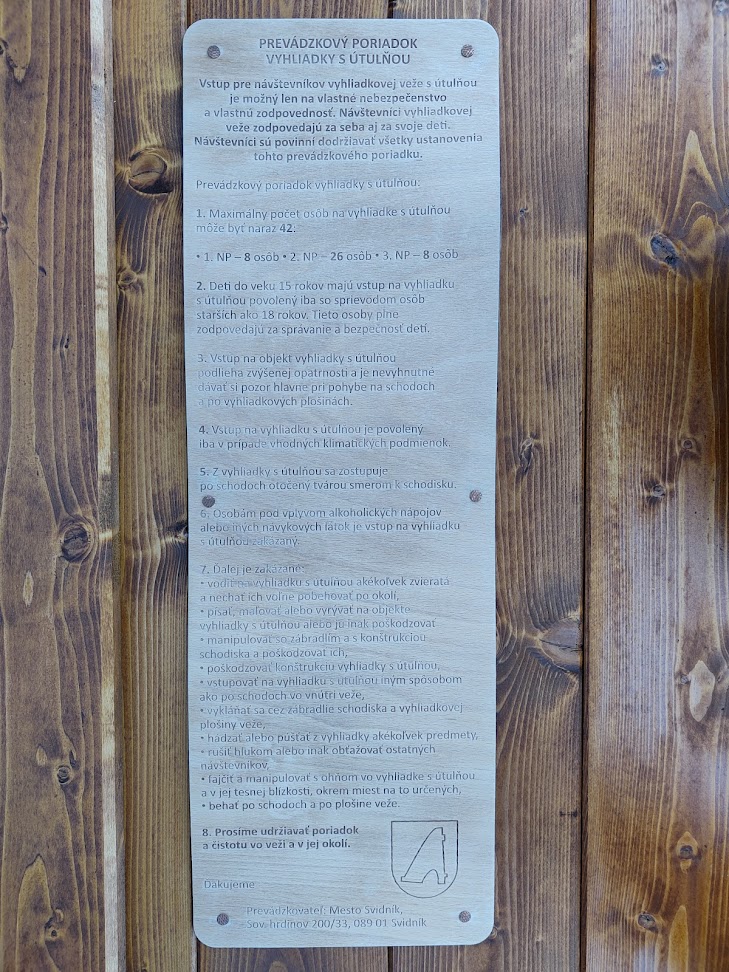 PREVÁDZKOVÝ PORIADOK
VYHLIADKY S ÚTULŇOU
Vstup pre návštevníkov vyhliadkovej veže s útulňou
je možný len na vlastné nebezpečenstvo
a vlastnú zodpovednosť. Návštevníci vyhliadkovej
veže zodpovedajú za seba aj za svoje deti.
Návštevníci sú povinní dodržiavať všetky ustanovenia
tohto prevádzkového poriadku.
Prevádzkový poriadok vyhliadky s útulňou:
1. Maximálny počet osôb na vyhliadke s útulňou
môže byť naraz 42:
• 1. NP – 8 osôb • 2. NP – 26 osôb • 3. NP – 8 osôb
2. Deti do veku 15 rokov majú vstup na vyhliadku
s útulňou povolený iba so sprievodom osôb
starších ako 18 rokov. Tieto osoby plne
zodpovedajú za správanie a bezpečnosť detí.
3. Vstup na objekt vyhliadky s útulňou
podlieha zvýšenej opatrnosti a je nevyhnutné
dávať si pozor hlavne pri pohybe na schodoch
a po vyhliadkových plošinách.
4. Vstup na vyhliadku s útulňou je povolený
iba v prípade vhodných klimatických podmienok.
5. Z vyhliadky s útulňou sa zostupuje
po schodoch otočený tvárou smerom k schodisku.
6. Osobám pod vplyvom alkoholických nápojov
alebo iných návykových látok je vstup na vyhliadku
s útulňou zakázaný.
7. Ďalej je zakázané:
• vodiť na vyhliadku s útulňou akékoľvek zvieratá
a nechať ich voľne pobehovať po okolí,
• písať, maľovať alebo vyrývať na objekte
vyhliadky s útulňou alebo ju inak poškodzovať
• manipulovať so zábradlím a s konštrukciou
schodiska a poškodzovať ich,
• poškodzovať konštrukciu vyhliadky s útulňou,
• vstupovať na vyhliadku s útulňou iným spôsobom
ako po schodoch vo vnútri veže,
• vykláňať sa cez zábradlie schodiska a vyhliadkovej
plošiny veže,
• hádzať alebo púšťať z vyhliadky akékoľvek predmety,
• rušiť hlukom alebo inak obťažovať ostatných
návštevníkov,
• fajčiť a manipulovať s ohňom vo vyhliadke s útulňou
a v jej tesnej blízkosti, okrem miest na to určených,
• behať po schodoch a po plošine veže.
8. Prosíme udržiavať poriadok
a čistotu vo veži a v jej okolí.
Ďakujeme
Prevádzkovateľ: Mesto Svidník,
Sov. hrdinov 200/33, 089 01 Svidník